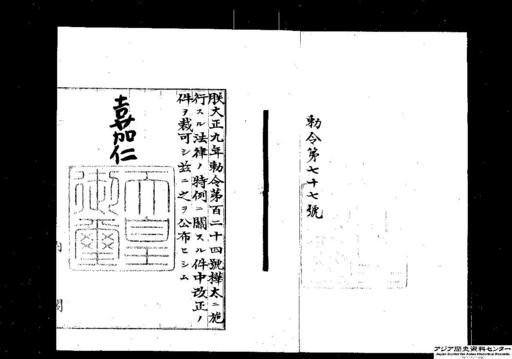 勅令第七十七號
朕大正九年勅令第百二十四號樺太ニ施
行スル法律ノ特例ニ關スル件中改正ノ
件ヲ裁可シ茲ニ之ヲ公布セシム
嘉仁
天皇
御璽
内
閣
アジア歴史資料センター
Japan Center for Asian Historical Records